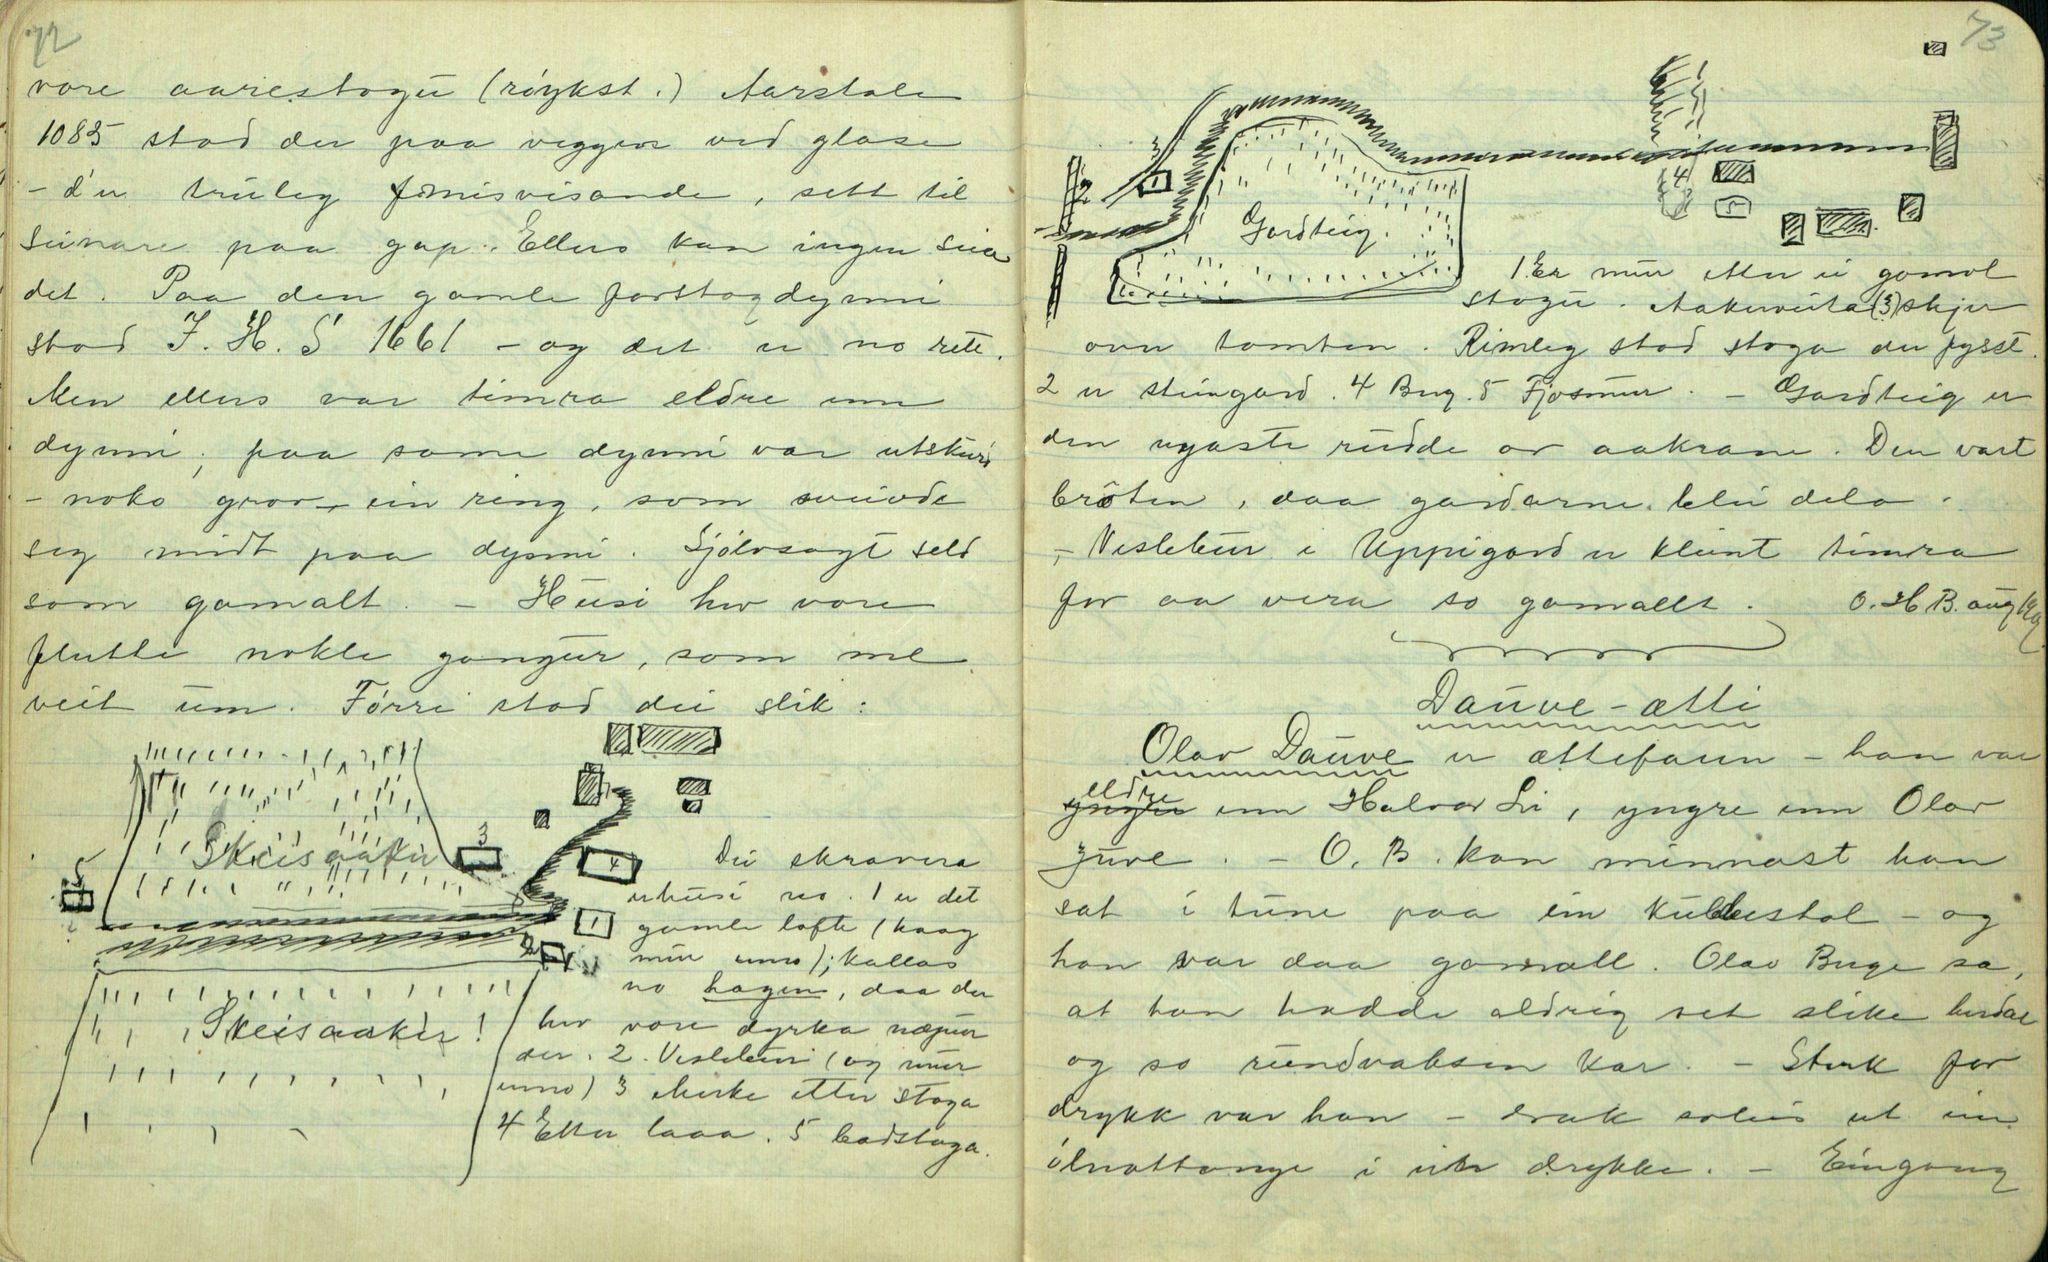 72
vore aarestogu (røykst.) Aarstale
1085 stod der paa veggen ved glase
- d'er truleg misvisande, sett til
seinare paa gap. Ellers kan ingen seia
det. Paa den gamle forstogdynni
stod J. H. S 1661 - og det er no rett.
Men ellers var timra eldre enn
dynni; paa same dynni var utskuri
- noko grov - ein ring, som sneivde
seg midt paa dynni. Sjølvsagt seld
som gamalt. - Husi hev vore
flutte nokle gongur, som me
veit um. Førri stod dei slik:
Skeisaaker
3
4
1
2
5
Skeisaaker!
Dei skravera
er husi no. 1 er det
gamle lofte (haag
mur enno); kallas
no hagen, daa der
hev vore dyrka næpur
der. 2. Veslebur (og mur
enno) 3 Merke etter stoga
4 Etter laaa. 5 badstoga.
73
3
2
1
4
5
Gardteig.
1 Er mur etter ei gamol
stogu. Aakerveita (3) skjer
over tomten. Rimleg stod stoga der fysst.
2 er steingard. 4 Bug. 5 Fjosmur. - Gardteig er
den nyaste rudde av aakrane. Den vart
broten, daa gardarne blei delo.
- Veslebur i Uppigard er kleint timra
for aa vera so gamallt. O. H. B. aug
Dauve-ætti
Olav Dauve er ættefaren - han var
eldre
yngre enn Halvor Li, yngre enn Olav
Juve. - O. B. kan minnast han
sat i tune paa ein kubbestol - og
han var daa gamall. Olav Buge sa,
at han hadde aldrig set slike herdar
og so rundvaksen kar. - Sterk for
drykk var han - drak soleis ut ein
ølnattange i ein drykke. - Eingong